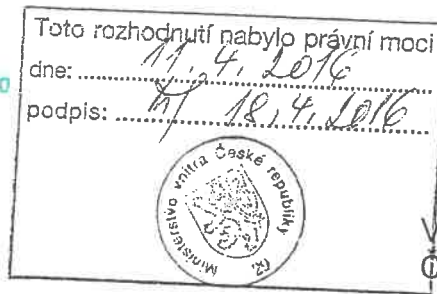 Toto rozhodnutí nabylo právní moci
dne: 11. 4. 2016
podpis: 18. 4. 2016
Ministerstvo vnitra České republiky